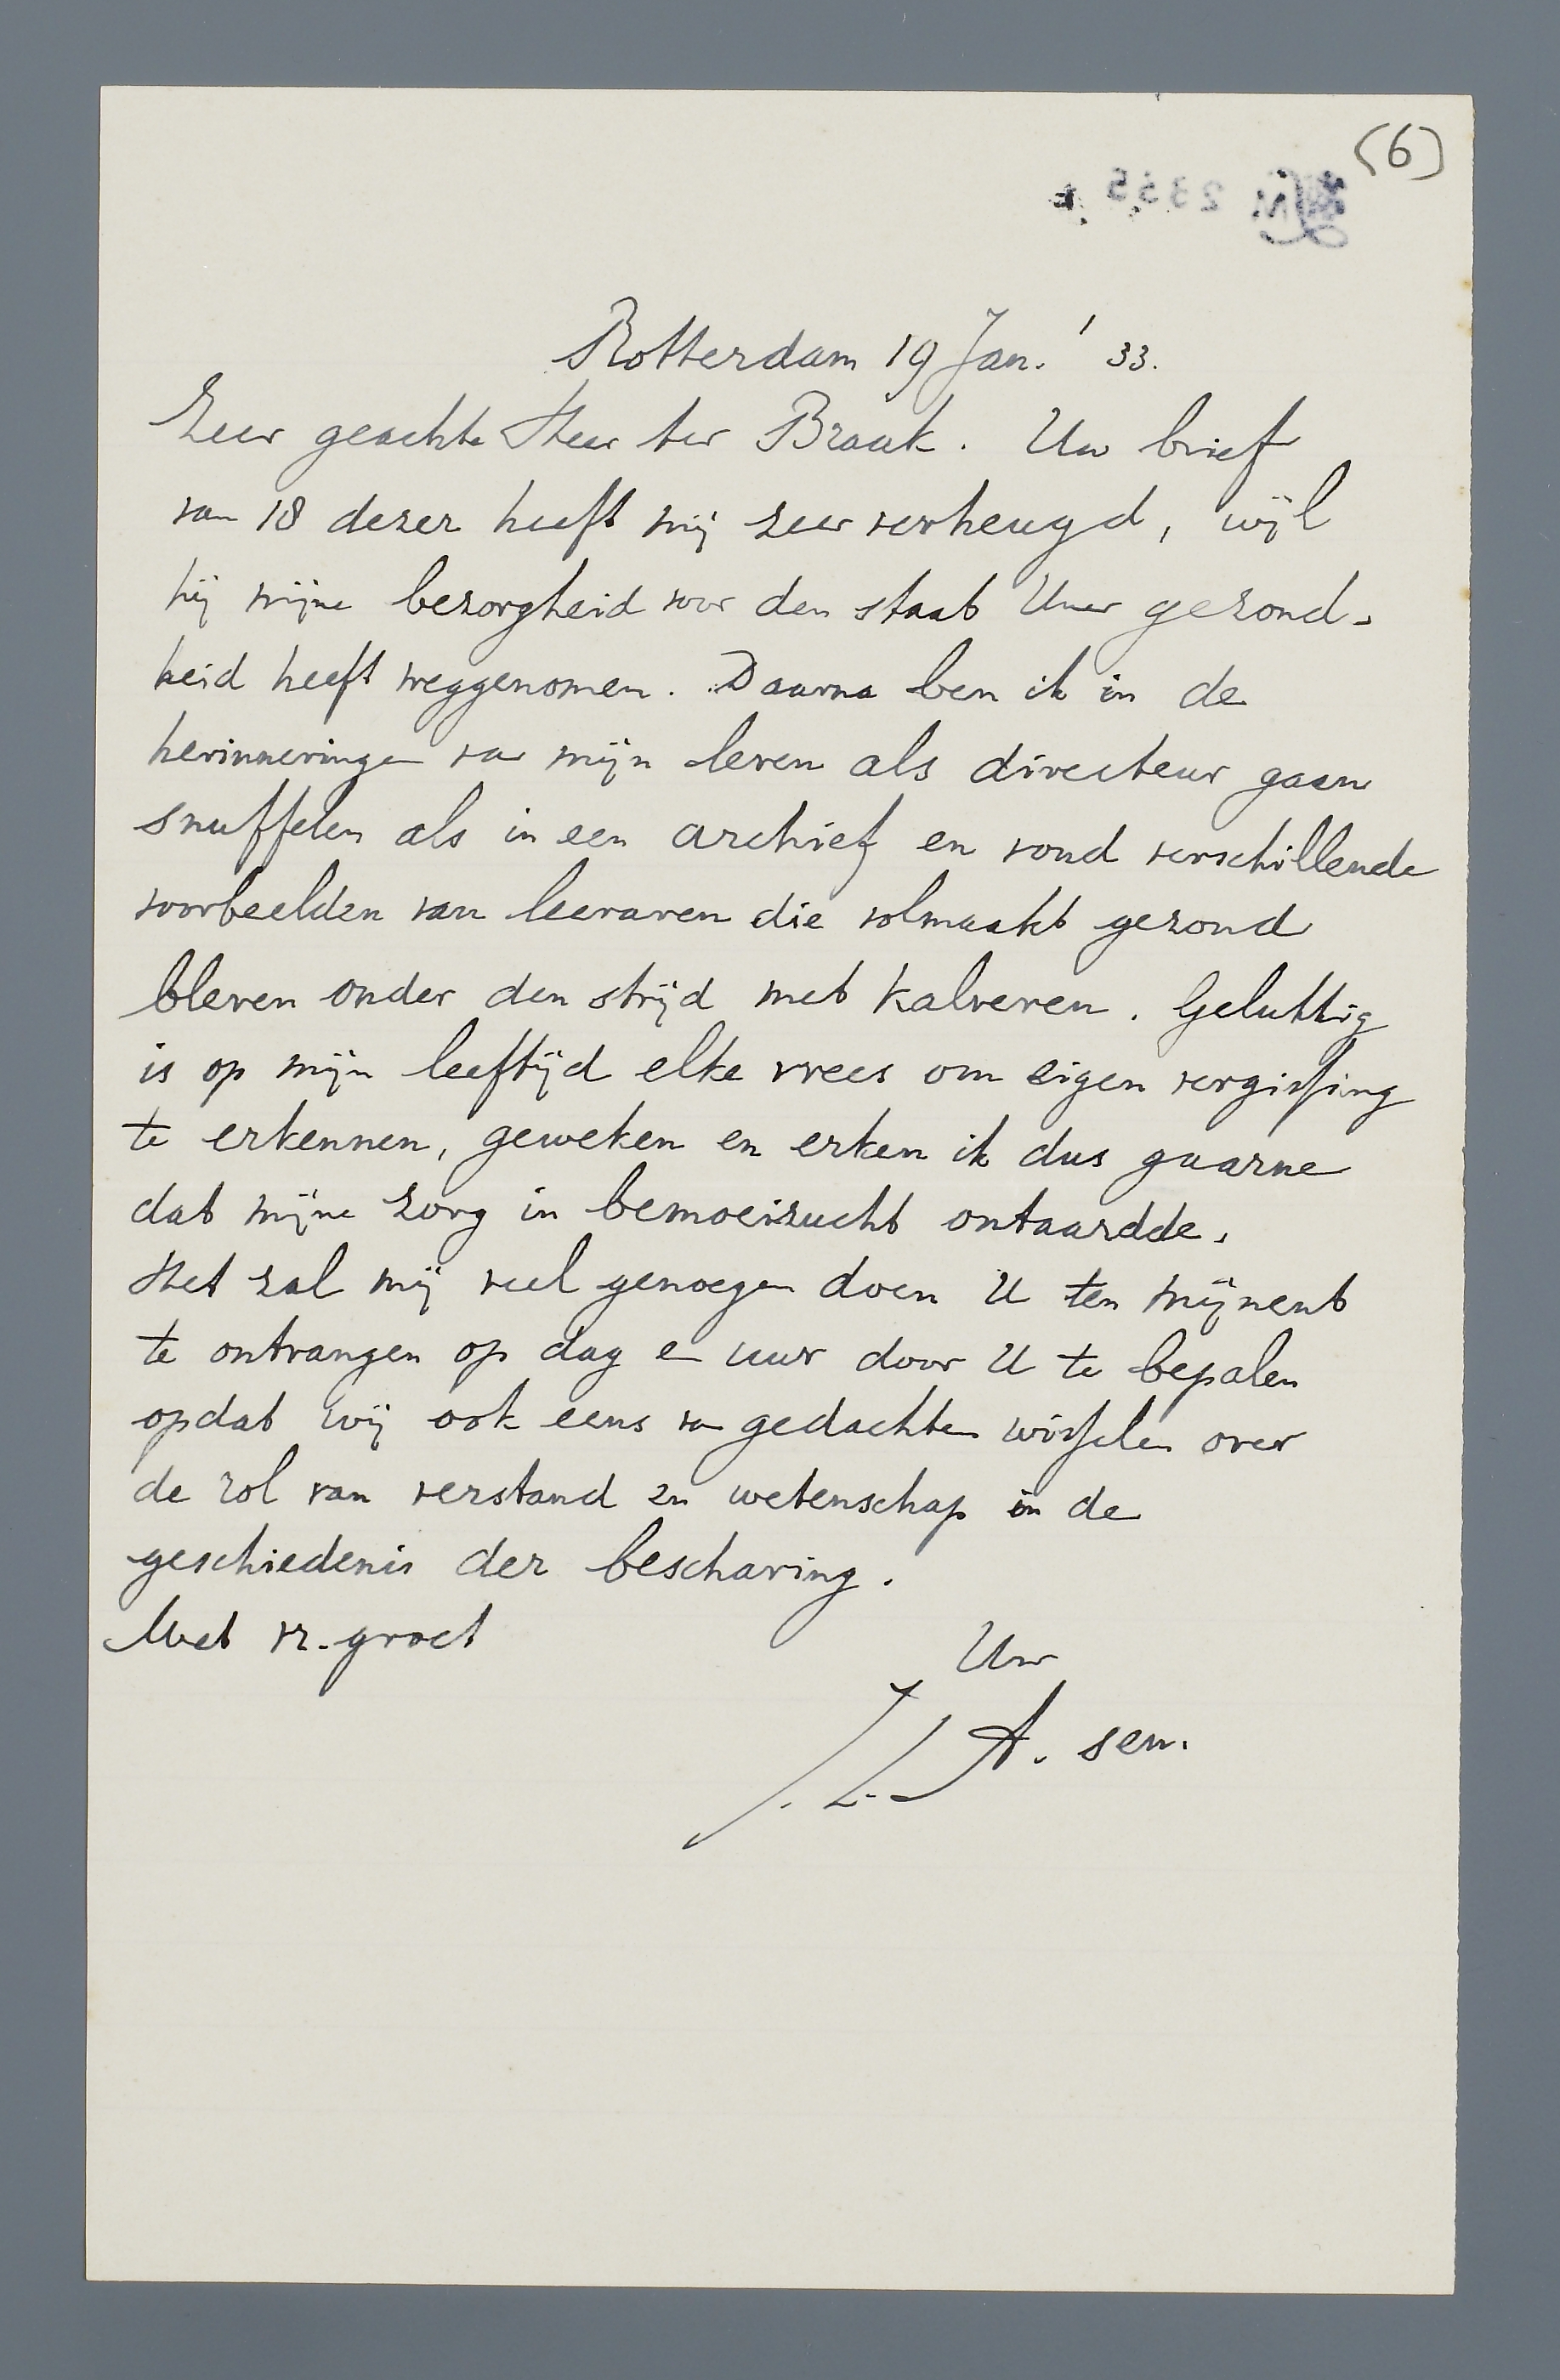 (6)
Rotterdam 19 Jan. '33.
Zeer geachte Heer ter Braak. Uw brief
van 18 dezer heeft mij zeer verheugd, wijl
hij mijne bezorgheid voor den staat Uwer gezond-
heid heeft weggenomen. Daarna ben ik in de
herinneringen van mijn leven als directeur gaan
snuffelen als in een archief en vond verschillende
voorbeelden van leeraren die volmaakt gezond
bleven onder den strijd met kalveren. Gelukkig
is op mijn leeftijd elke vrees om eigen vergissing
te erkennen, geweken en erken ik dus gaarne
dat mijne zorg in bemoeizucht ontaardde.
Het zal mij veel genoegen doen U ten mijnent
te ontvangen op dag en uur door U te bepalen
opdat wij ook eens van gedachten wisselen over
de rol van verstand en wetenschap in de
geschiedenis der beschaving.
Met vr. groet
Uw
J. L. A. sen.